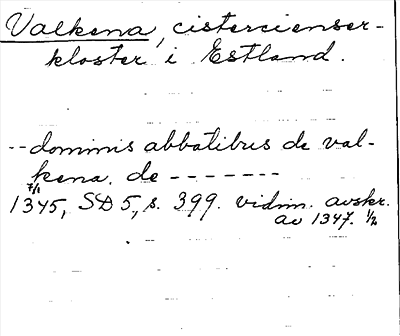 Valkena, cistercienser-
kloster i Estland.
-- dominis abbatibus de val-
kena. de -------
7/1
1345, SD 5, s. 399. vidim. avskr.
av 1347. 1/2